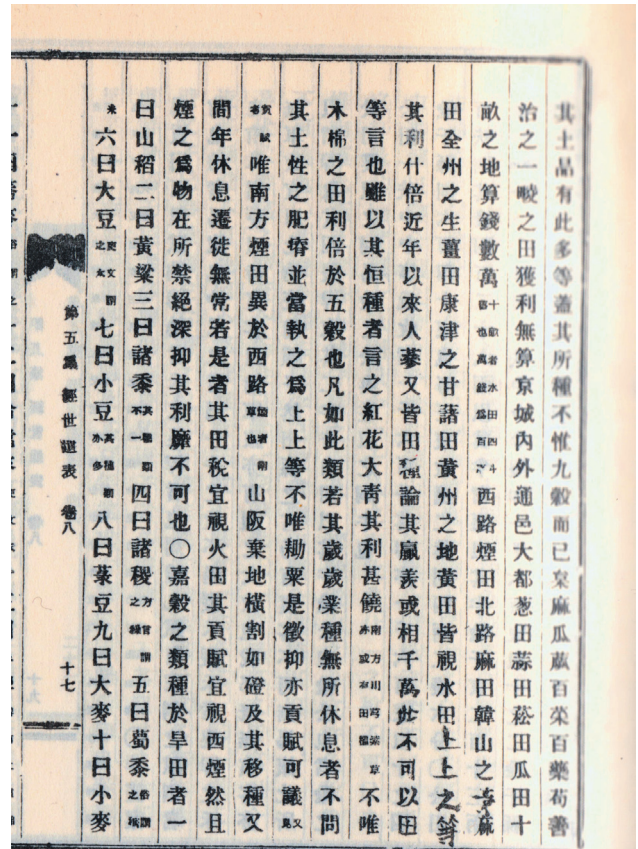 其土品有此多等蓋其所種不惟九穀而已枲麻瓜蓏百菜百藥苟善
治之一畯之田獲利無算京城內外通邑大都葱田蒜田菘田瓜田十
畝之地算錢數萬十畝者水田四斗西路煙田北路麻田韓山之麻
田全州之生薑田康津之甘藷田黃州之地黃田皆視水田上上之等
其利什倍近年以來人蔘又皆田種論其贏羨或相千萬此不可以田
等言也雖以其恒種者言之紅花大靑其利甚饒南方不唯
木棉之田利倍於五穀也凡如此類若其歲歲業種無所休息者不問
其土性之肥瘠並當執之爲上上等不唯耡粟是徵抑亦貢賦可議又見
貢賦考唯南方煙田異於西路山阪棄地橫割如磴及其移種又
間年休息遷徙無常若是者其田稅宜視火田其貢賦宜視西煙然且
煙之爲物在所禁絕深抑其利靡不可也〇嘉穀之類種於旱田者一
曰山稻二曰黃粱三曰諸黍其種類不一四曰諸稷方言謂之穄五曰蜀黍俗謂之
六曰大豆七曰小豆其種類亦多八曰菉豆九曰大麥十曰小麥
第五集 經世遺表 卷八
十七